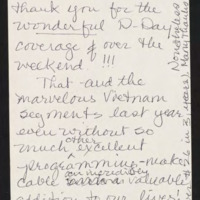 thank you for the
wonderful D-Day
coverage of over the
weekend !!!
That - and the
marvelous Vietnam
segments last year
even without so
much other excellent
programming - make
cable an incredibly valuable
addition to our lives
in 2 years). Many Thanks